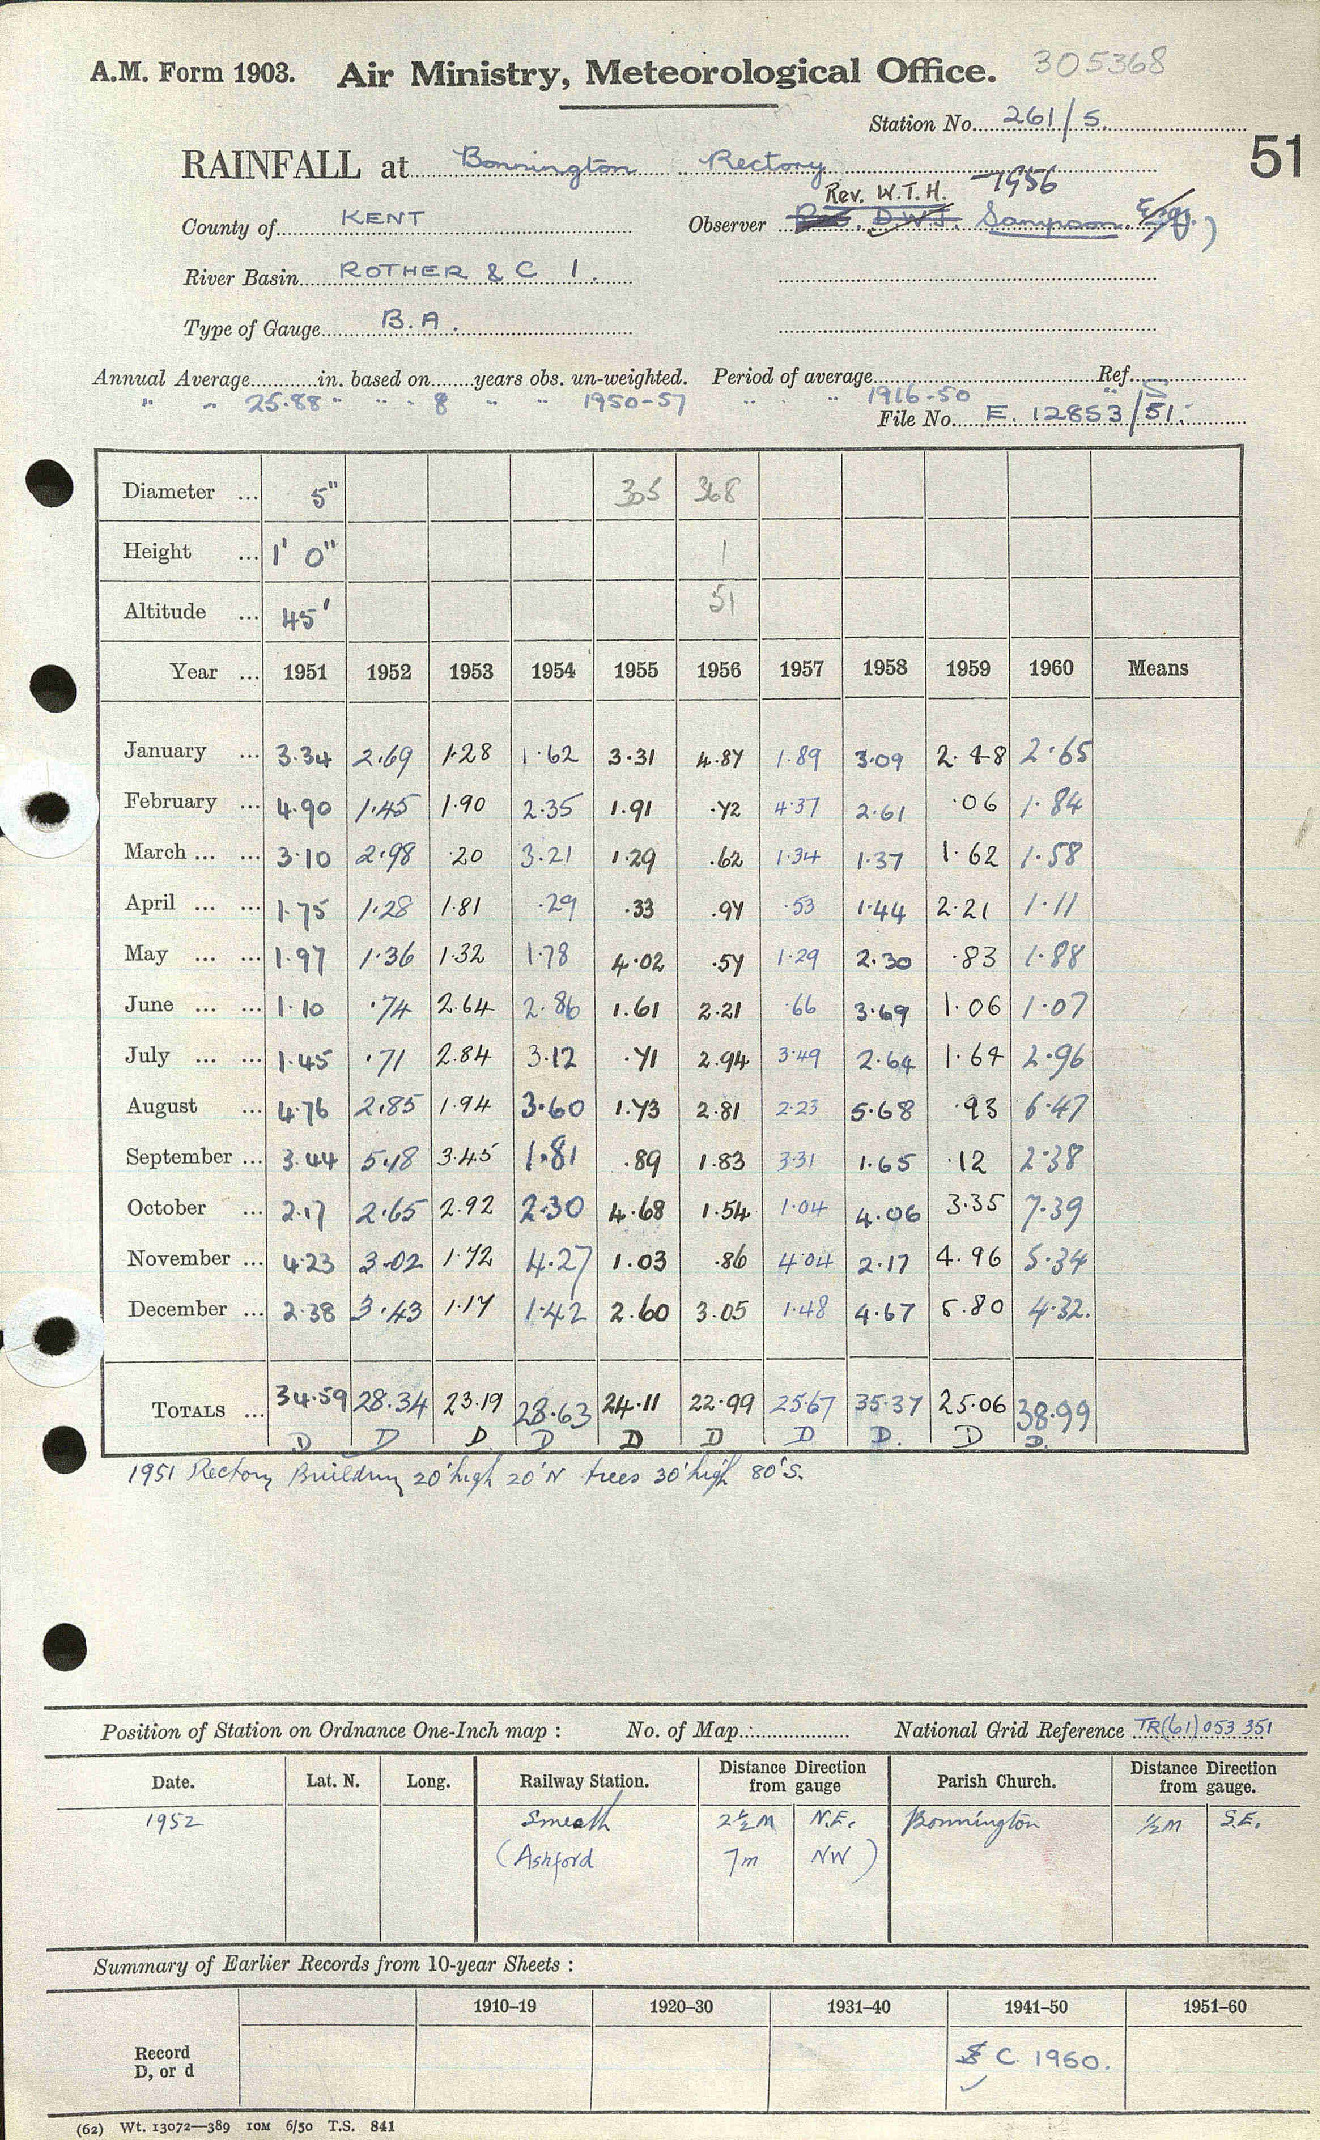 A.M. Form 1903. Air Ministry, Meteorological Office. 305368
Station No. 261/5.
51
RAINFALL at Bonnington Rectory
Rev. W.T.H. -1956
County of KENT Observer Rev. D.W.J. Sampson. Esq.)
River Basin ROTHER & C 1.
Type of Gauge B.A.
Annual Average in. based on years obs. un-weighted. Period of average Ref.
" " 25.88 " " " 8 " " 1950-57 " " " 1916-50 "
File No. E. 12853/51.
Diameter ... 5" 305 368
Height ... 1' 0" 1
Altitude ... 45' 51
Year ... 1951 1952 1953 1954 1955 1956 1957 1958 1959 1960 Means
January ... 3.34 2.69 1.28 1.62 3.31 4.87 1.89 3.09 2.48 2.65
February ... 4.90 1.45 1.90 2.35 1.91 .72 4.37 2.61 .06 1.84
March ... ... 3.10 2.98 .20 3.21 1.29 .62 1.34 1.37 1.62 1.58
April ... ... 1.75 1.28 1.81 .29 .33 .97 .53 1.44 2.21 1.11
May ... ... 1.97 1.36 1.32 1.78 4.02 .57 1.29 2.30 .83 1.88
June ... ... 1.10 .74 2.64 2.86 1.61 2.21 .66 3.69 1.06 1.07
July ... ... 1.45 .71 2.84 3.12 .71 2.94 3.49 2.64 1.64 2.96
August ... 4.76 2.85 1.94 3.60 1.73 2.81 2.23 5.68 .93 6.47
September ... 3.44 5.18 3.45 1.81 .89 1.83 3.31 1.65 .12 2.38
October ... 2.17 2.65 2.92 2.30 4.68 1.54 1.04 4.06 3.35 7.39
November ... 4.23 3.02 1.72 4.27 1.03 .86 4.04 2.17 4.96 5.34
December ... 2.38 3.43 1.17 1.42 2.60 3.05 1.48 4.67 5.80 4.32.
TOTALS ... 34.59 28.34 23.19 28.63 24.11 22.99 25.67 35.37 25.06 38.99
D D D D D D D D. D D.
1951 Rectory Building 20' high 20' N trees 30' high 80' S.
Position of Station on Ordnance One-Inch map : No. of Map. : National Grid Reference TR(61) 053 351
Date. Lat. N. Long. Railway Station. Distance Direction from gauge Parish Church. Distance Direction from gauge.
1952 Smeeth 2½ M N.E. Bonnington ½ M S.E.
(Ashford 7m NW)
Summary of Earlier Records from 10-year Sheets :
1910–19 1920–30 1931–40 1941–50 1951–60
Record D, or d C 1960.
(62) Wt. 13072—389 10M 6/50 T.S. 841